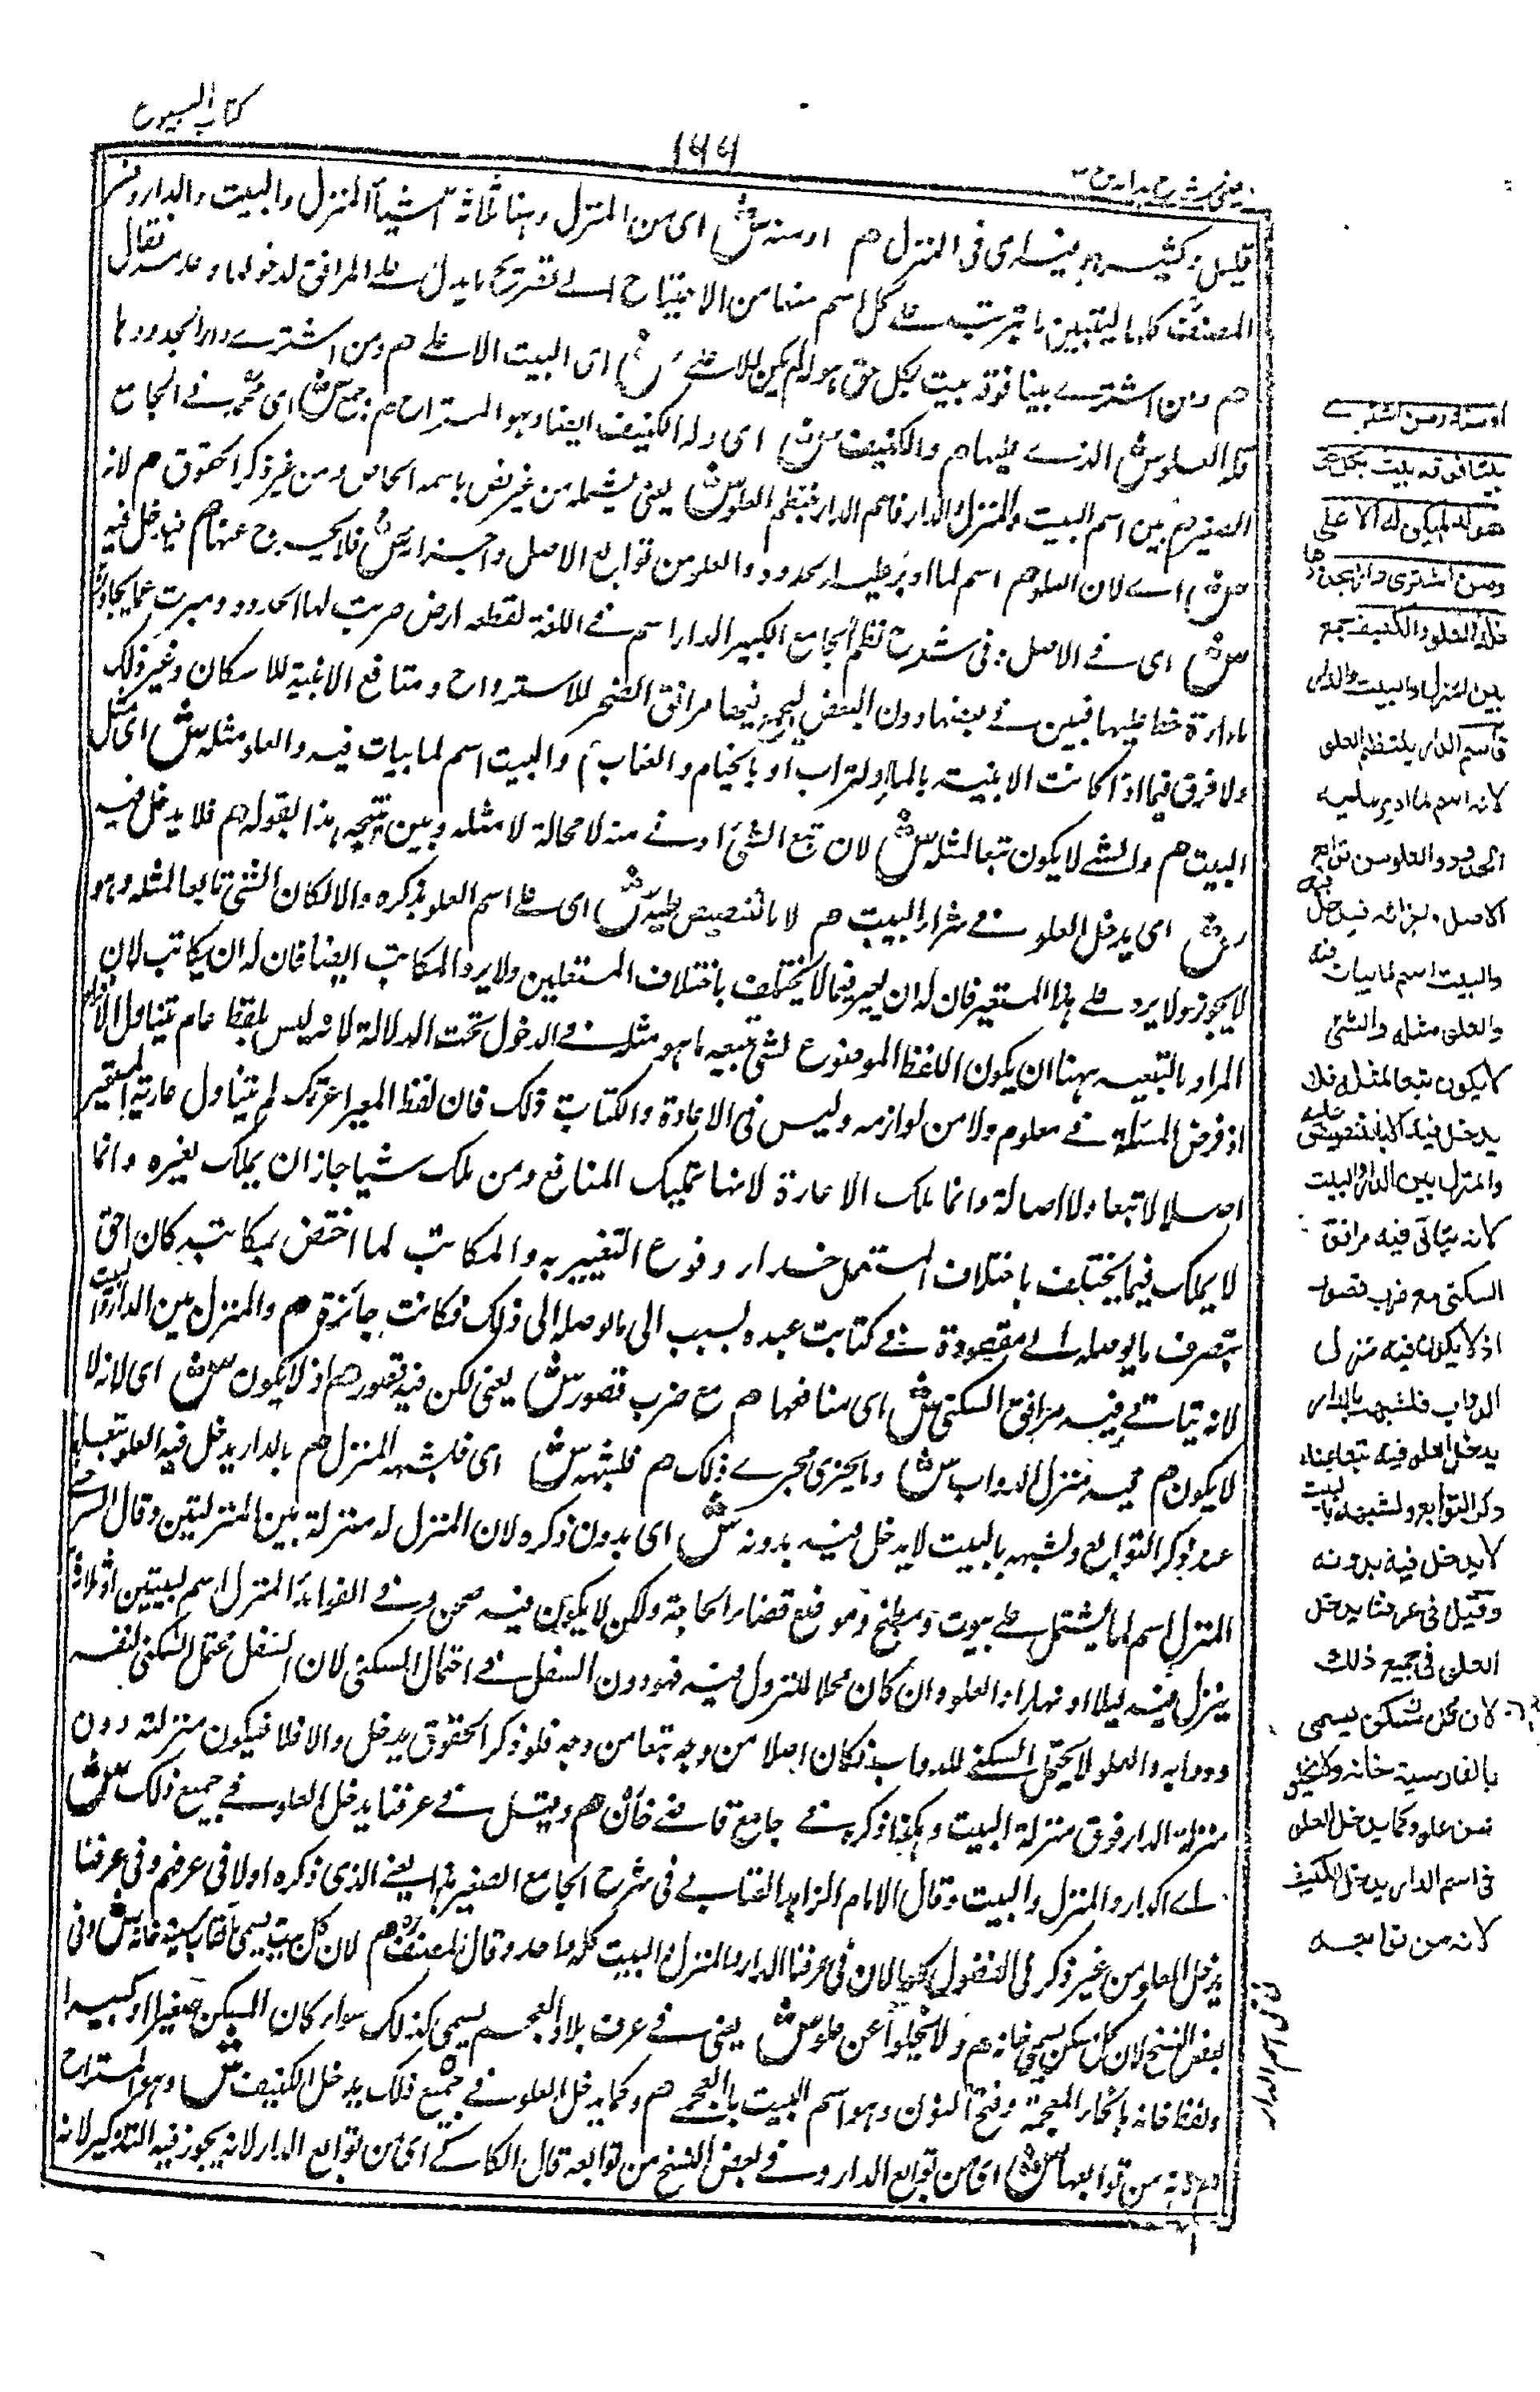 كتاب البيوع
١٩٩
عينى شرح هدايه ج ٣
قليل وكثير هو فيه اى فى المنزل م او منه ش اى من المنزل وهنا ثلاثة اشياء المنزل والبيت والدار وفسر
المصنف كلها ليتبين ما يترتب على كل اسم منها من الاحتياج الى تصريح ما يدل على المرافق لدخولها وعدمه فقال
م ومن اشترى بيتا فوقه بيت بكل حق هو له لم يكن له الاعلى ش اى البيت الاعلى م ومن اشترى دارا بحدودها
فله العلو ش الذى عليها م والكنيف ش اى وله الكنيف ايضا وهو المستراح م جمع ش اى محمد فى الجامع
الصغير م بين اسم البيت والمنزل والدار فاسم الدار ينتظم العلو ش يعنى يشمله من غير نص باسمه الخاص ومن غير ذكر الحقوق م لانه
ش اى لان العلو م اسم لما ادير عليه الحدود والعلو من توابع الاصل واجزائه ش فلا يخرج عنها م فيدخل فيه
ش اى فى الاصل وفى شرح نظم الجامع الكبير الدار اسم فى اللغة لقطعة ارض ضربت لها الحدود وميزت عما يجاورها
بادارة خط عليها فبين فى بعضها دون البعض ليجمع فيها مرافق الصحن للاسترواح ومنافع الابنية للاسكان وغير ذلك
ولا فرق فيما اذا كانت الابنية بالماء والتراب او بالخيام والقباب م والبيت اسم لما يبات فيه والعلو مثله ش اى مثل
البيت م والشئ لا يكون تبعا لمثله ش لان تبع الشئ ادنى منه لا محالة لا مثله وبين نتيجة هذا بقوله م فلا يدخل فيه
ش اى يدخل العلو فى شراء البيت م الا بالتنصيص عليه ش اى على اسم العلو بذكره والا لكان الشئ تابعا لمثله وهو
لا يجوز ولا يرد على هذا المستعير فان له ان يعير فيما لا يختلف باختلاف المستعملين ولا يرد المكاتب ايضا فان له ان يكاتب لان
المراد بالتبعية ههنا ان يكون اللفظ الموضوع لشئ تبعية ما هو مثله فى الدخول تحت الدلالة لانه ليس بلفظ عام يتناول الافراد
اذ فرض المسئلة فى معلوم ولا من لوازمه وليس فى الاعارة والكتابة ذلك فان لفظ المعير اعرتك لم يتناول عارية المستعير
اصلا لا تبعا ولا اصالة وانما ملك الاعارة لانها تمليك المنافع ومن ملك شيا جاز ان يملك لغيره وانما
لا يملك فيما يختلف باختلاف المستعمل حذرا وقوع التغيير به والمكاتب لما اختص بمكاتبه كان احق
بتصرف ما يوصله الى مقصوده وفى كتابت عبده لسبب الى ما يوصله الى ذلك فكانت جائزة م والمنزل بين الدار والبيت
لانه يتأتى فيه مرافق السكنى ش اى منافعها م مع ضرب قصور ش يعنى لكن فيه قصور م اذ لا يكون ش اى لانه لا
لا يكون م فيه منزل الدواب ش وما يجرى مجرى ذلك م فلشبهه ش اى فلشبه المنزل م بالدار يدخل فيه العلو تبعا
عند ذكر التوابع ولشبهه بالبيت لا يدخل فيه بدونه ش اى بدون ذكره لان المنزل له منزلة بين المنزلتين وقال السرخسى
المنزل اسم لما يشتمل على بيوت ومطبخ وموضع قضاء الحاجة ولكن لا يكون فيه صحن وفى الفوائد المنزل اسم لبيتين او ثلاثة
ينزل فيه ليلا او نهارا والعلو وان كان محلا للنزول فيه فهو دون السفل فى احتمال السكنى لان السفل محتمل السكنى لنفسه
ودوابه والعلو لا يحتمل السكنى للدواب فكان اصلا من وجه تبعا من وجه فلو ذكر الحقوق يدخل والا فلا فيكون منزلته دون
منزلة الدار فوق منزلة البيت وهكذا ذكر فى جامع قاضى خان م وقيل فى عرفنا يدخل العلو فى جميع ذلك ش
اى الدار والمنزل والبيت وقال الامام الزاهد العتابى فى شرح الجامع الصغير هذا يعنى الذى ذكره اولا فى عرفهم وفى عرفنا
يدخل العلو من غير ذكر فى الفصول كلها لان فى عرفنا الدار والمنزل والبيت كله واحد وقال المصنف م لان كل بيت يسمى بالفارسية خانه ش وفى
بعض النسخ لان كل مسكن يسمى خانه م ولا يخلوا عن علو ش يعنى فى عرف بلاد العجم يسمى كذلك سواء كان المسكن صغيرا او كبيرا
ولفظ خانه بالخاء المعجمة وفتح النون وهو اسم البيت بالعجمى م وكما يدخل العلو فى جميع ذلك يدخل الكنيف ش وهو المستراح
م لانه من توابعها ش اى من توابع الدار وفى بعض النسخ من توابعه قال الكاكى اى من توابع الدار لانه يجوز فيه التذكير لانه
او منه ومن اشترى
بيتا فوقه بيت بكل حق
هو له لم يكن له الاعلى
ومن اشترى دارا بحدودها
فله العلو والكنيف جمع
بين المنزل والبيت والدار
فاسم الدار ينتظم العلو
لانه اسم لما ادير عليه
الحدود والعلو من توابع
الاصل واجزائه فيدخل فيه
والبيت اسم لما يبات فيه
والعلو مثله والشئ
لا يكون تبعا لمثله فلا
يدخل فيه الا بالتنصيص عليه
والمنزل بين الدار والبيت
لانه يتأتى فيه مرافق
السكنى مع ضرب قصور
اذ لا يكون فيه منزل
الدواب فلشبهه بالدار
يدخل العلو فيه تبعا عند
ذكر التوابع ولشبهه بالبيت
لا يدخل فيه بدونه
وقيل فى عرفنا يدخل
العلو فى جميع ذلك
لان كل مسكن يسمى
بالفارسية خانه ولا يخلو
عن علو وكما يدخل العلو
فى اسم الدار يدخل الكنيف
لانه من توابعه